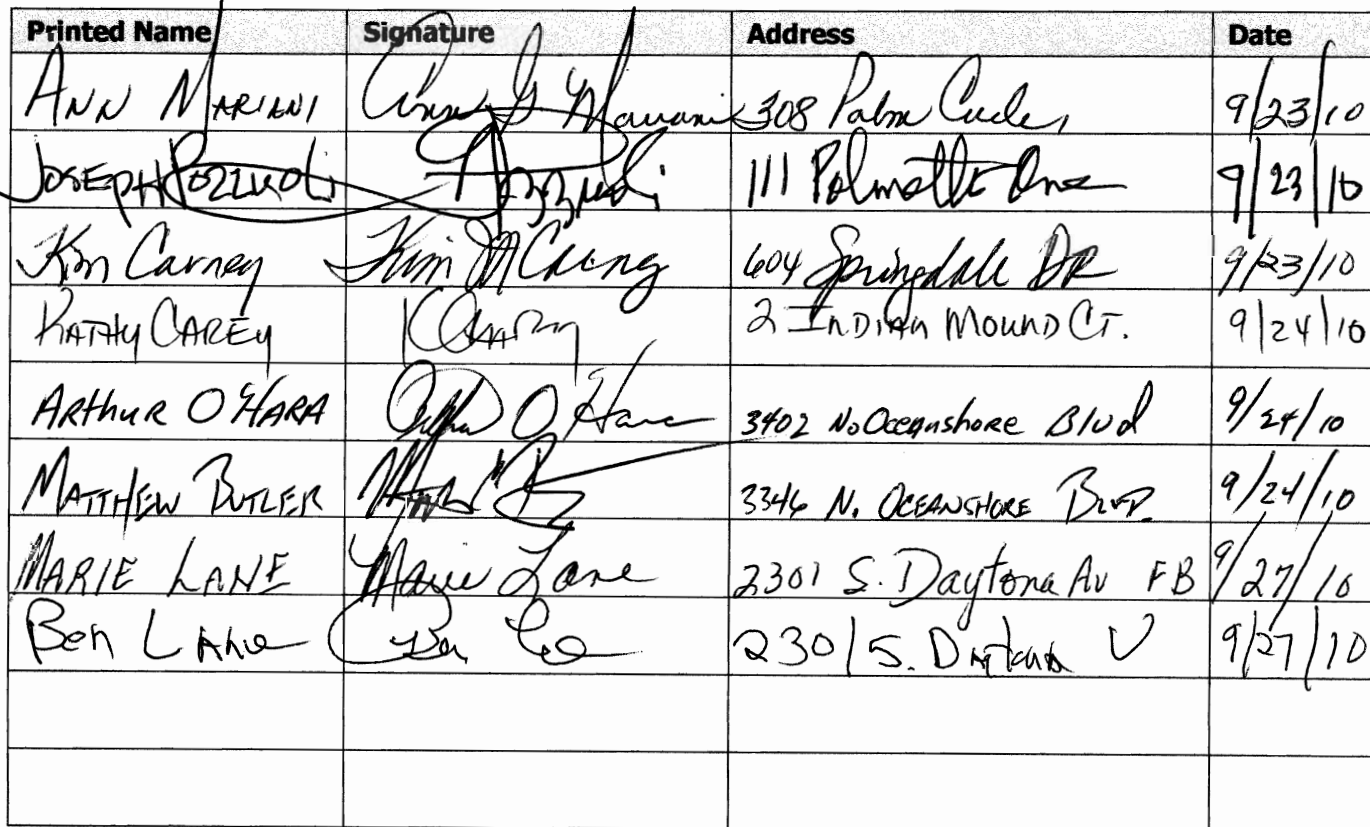 Printed Name Signature Address Date
ANN MARIANI Ann G Mariani 308 Palm Circle, 9/23/10
JOSEPH POZZUOLI Pozzuoli 111 Palmetto 9/23/10
Kim Carney Kim M Carney 604 Springdale DR 9/23/10
KATHY CAREY 2 INDIAN MOUND CT. 9/24/10
ARTHUR O'HARA O'Hara 3402 No Oceanshore Blvd 9/24/10
MATTHEW BUTLER 3346 N. OCEANSHORE BLVD. 9/24/10
MARIE LANE Marie Lane 2301 S. Daytona Av FB 9/27/10
Ben Lane Ben 2301 S. Daytona 9/27/10